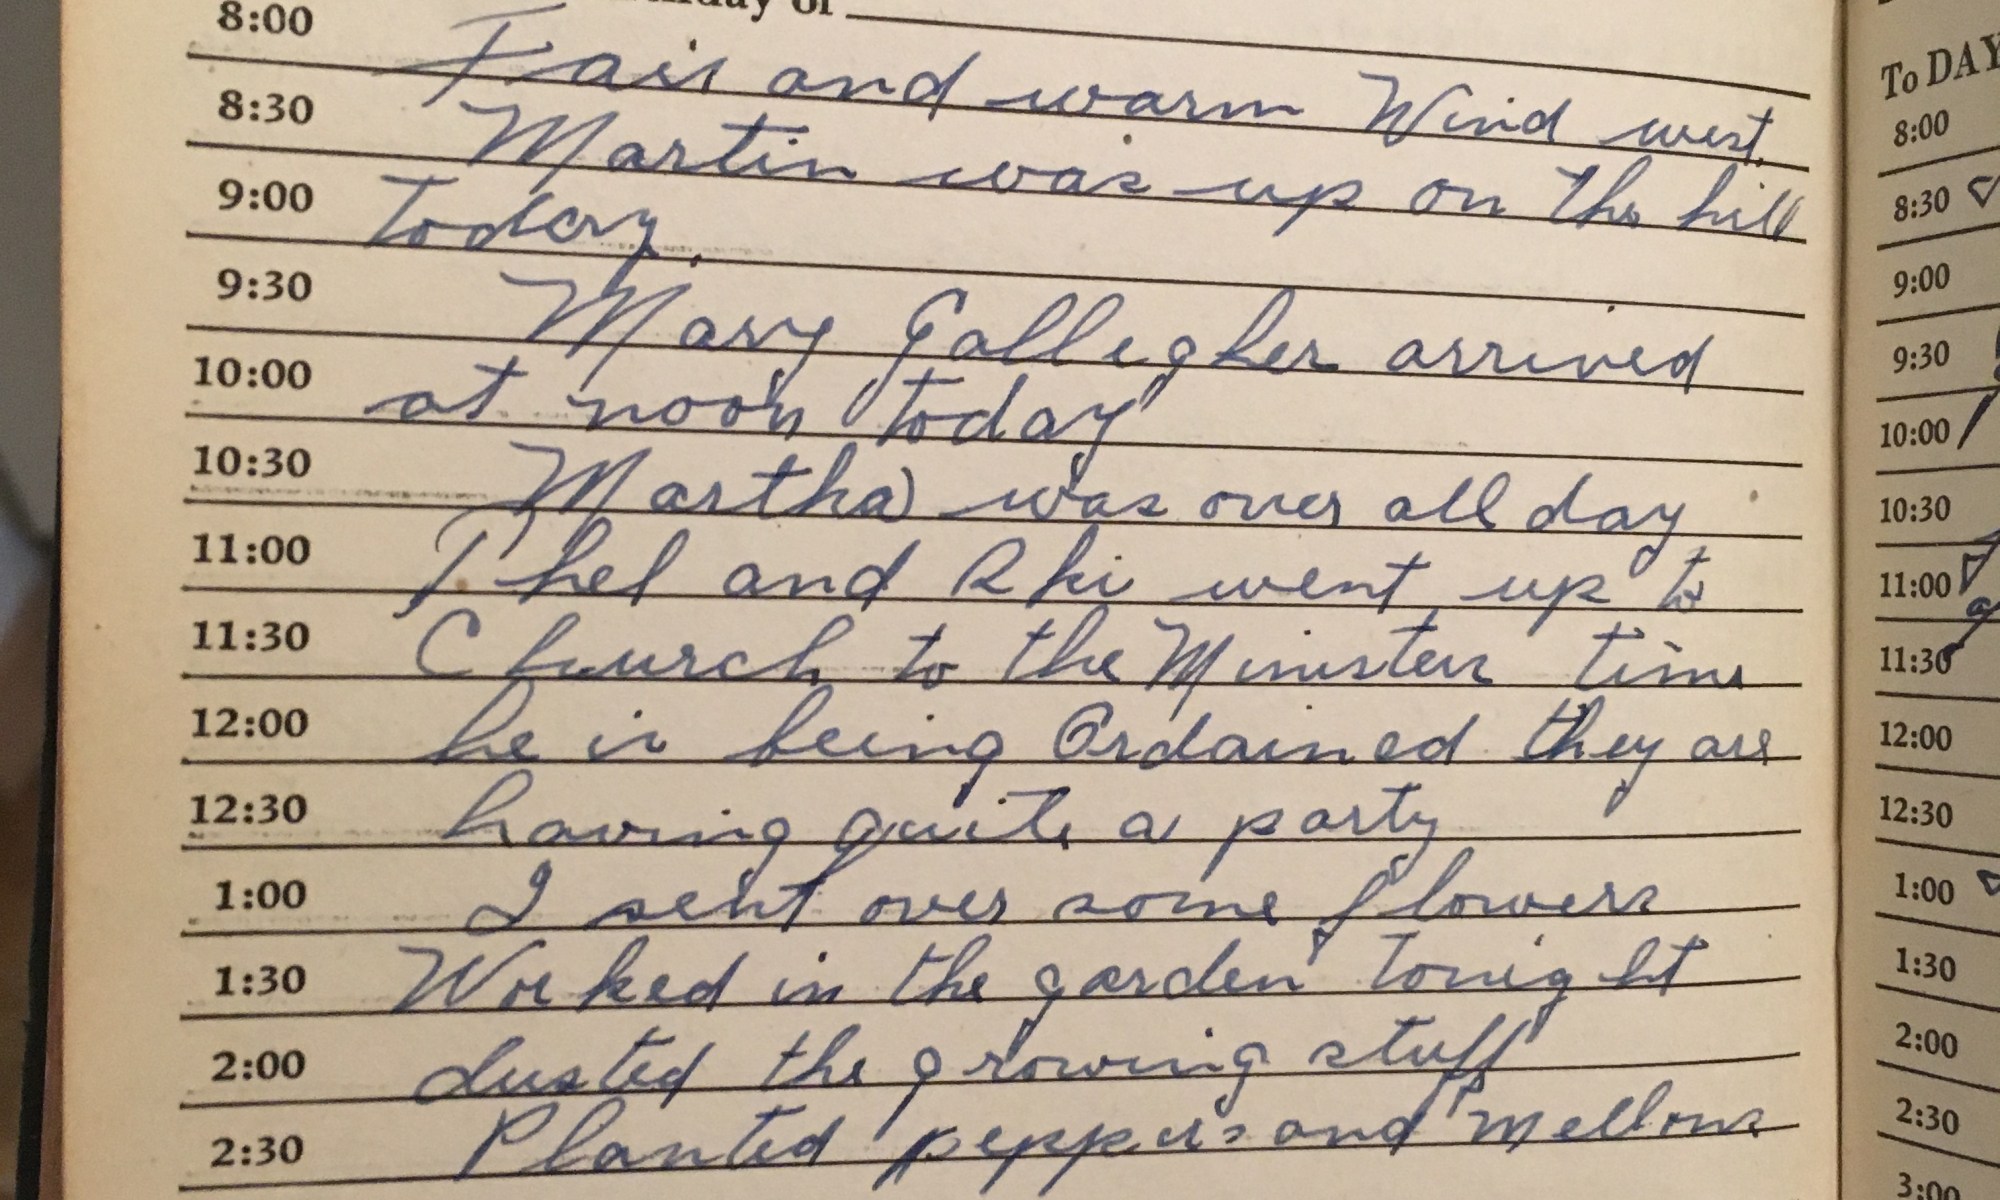 of
8:00 Fair and warm Wind west.
8:30 Martin was up on the hill
9:00 today.
9:30 Mary Gallegher arrived
10:00 at noon today
10:30 Martha was over all day
11:00 Phel and Rhi went up to
11:30 Church to the Minister time
12:00 he is being Ordained they are
12:30 having quite a party
1:00 I sent over some flowers
1:30 Worked in the garden tonight
2:00 dusted the growing stuff
2:30 Planted peppers and mellons
To DAY
8:00
8:30
9:00
9:30
10:00
10:30
11:00
11:30
12:00
12:30
1:00
1:30
2:00
2:30
3:00